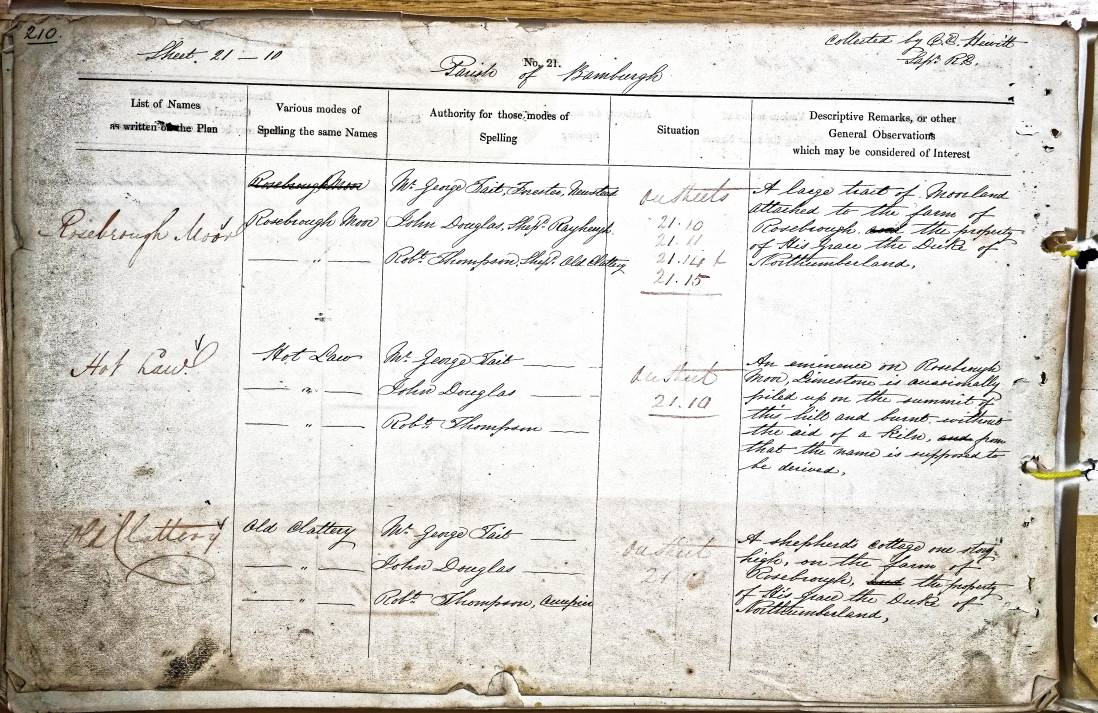 210.
Sheet. 21 — 10
No. 21.
Parish of Bamburgh
Collected by
Sapr. R.E.
List of Names
as written on the Plan
Various modes of
Spelling the same Names
Authority for those modes of
Spelling
Situation
Descriptive Remarks, or other
General Observations
which may be considered of Interest
Rosebrough Moor
Rosebrough Moor
Rosebrough Moor
— " —
Mr. George Tait, Forester, Newstead
John Douglas, Shepd. Rayheugh
Robt. Thompson, Shepd. Old Clattery
On Sheets
21.10
21.11
21.14 &
21.15
A large tract of Moorland
attached to the farm of
Rosebrough and the property
of His Grace the Duke of
Northumberland.
Hot Law
Hot Law
— " —
— " —
Mr. George Tait —
John Douglas —
Robt. Thompson —
On Sheet
21.10
An eminence on Rosebrough
Moor, Limestone is occasionally
piled up on the summit of
this hill and burnt without
the aid of a Kiln, and from
that the name is supposed to
be derived.
Old Clattery
Old Clattery
— " —
— " —
Mr. George Tait —
John Douglas —
Robt. Thompson, occupier
On Sheet
A shepherd's cottage one story
high, on the farm of
Rosebrough, and the property
of His Grace the Duke of
Northumberland.